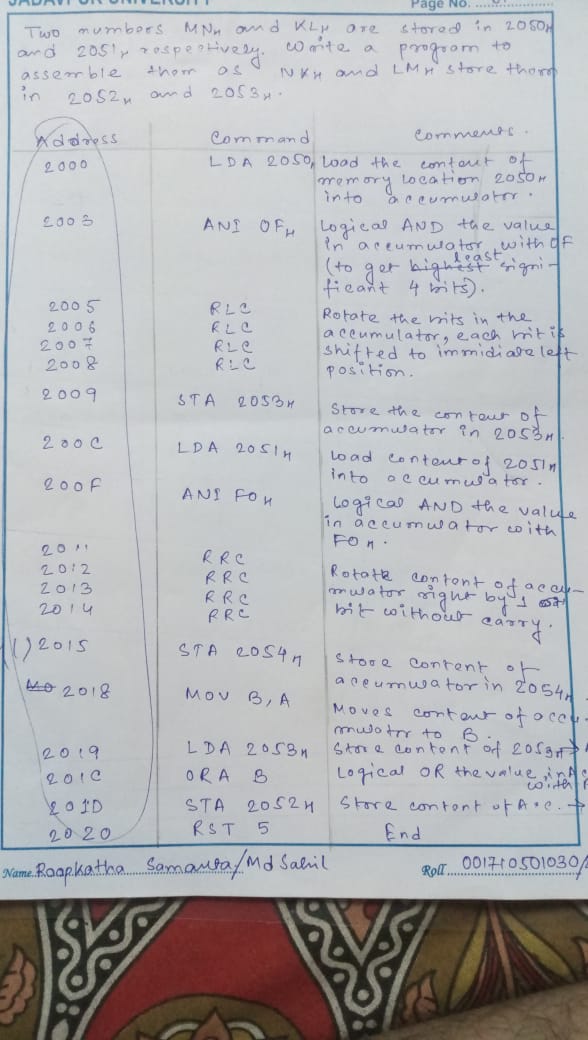 Page No.
Two numbers MNH and KLH are stored in 2050H
and 2051H respectively. Write a program to
assemble them as NKH and LMH store them
in 2052H and 2053H.
Address Command Comments.
2000 LDA 2050H Load the content of
memory location 2050H
into accumulator.
2003 ANI OFH Logical AND the value
in accumulator with OF
(to get highest least signi-
ficant 4 bits).
2005 RLC Rotate the bits in the
2006 RLC accumulator, each bit is
2007 RLC shifted to immidiate left
2008 RLC position.
2009 STA 2053H Store the content of
accumulator in 2053H.
200C LDA 2051H Load content of 2051H
into accumulator.
200F ANI FOH Logical AND the value
in accumulator with
FOH.
2011 RRC
2012 RRC Rotate content of accu-
2013 RRC mulator right by 1
2014 RRC bit without carry.
2015 STA 2054H Store content of
accumulator in 2054H
2018 MOV B, A Moves content of accu-
mulator to B.
2019 LDA 2053H Store content of 2053H →
201C ORA B Logical OR the value in A
with
201D STA 2052H Store content of Acc. →
2020 RST 5 End
Name. Roopkatha Samanta/Md Sahil Roll. 001710501030/